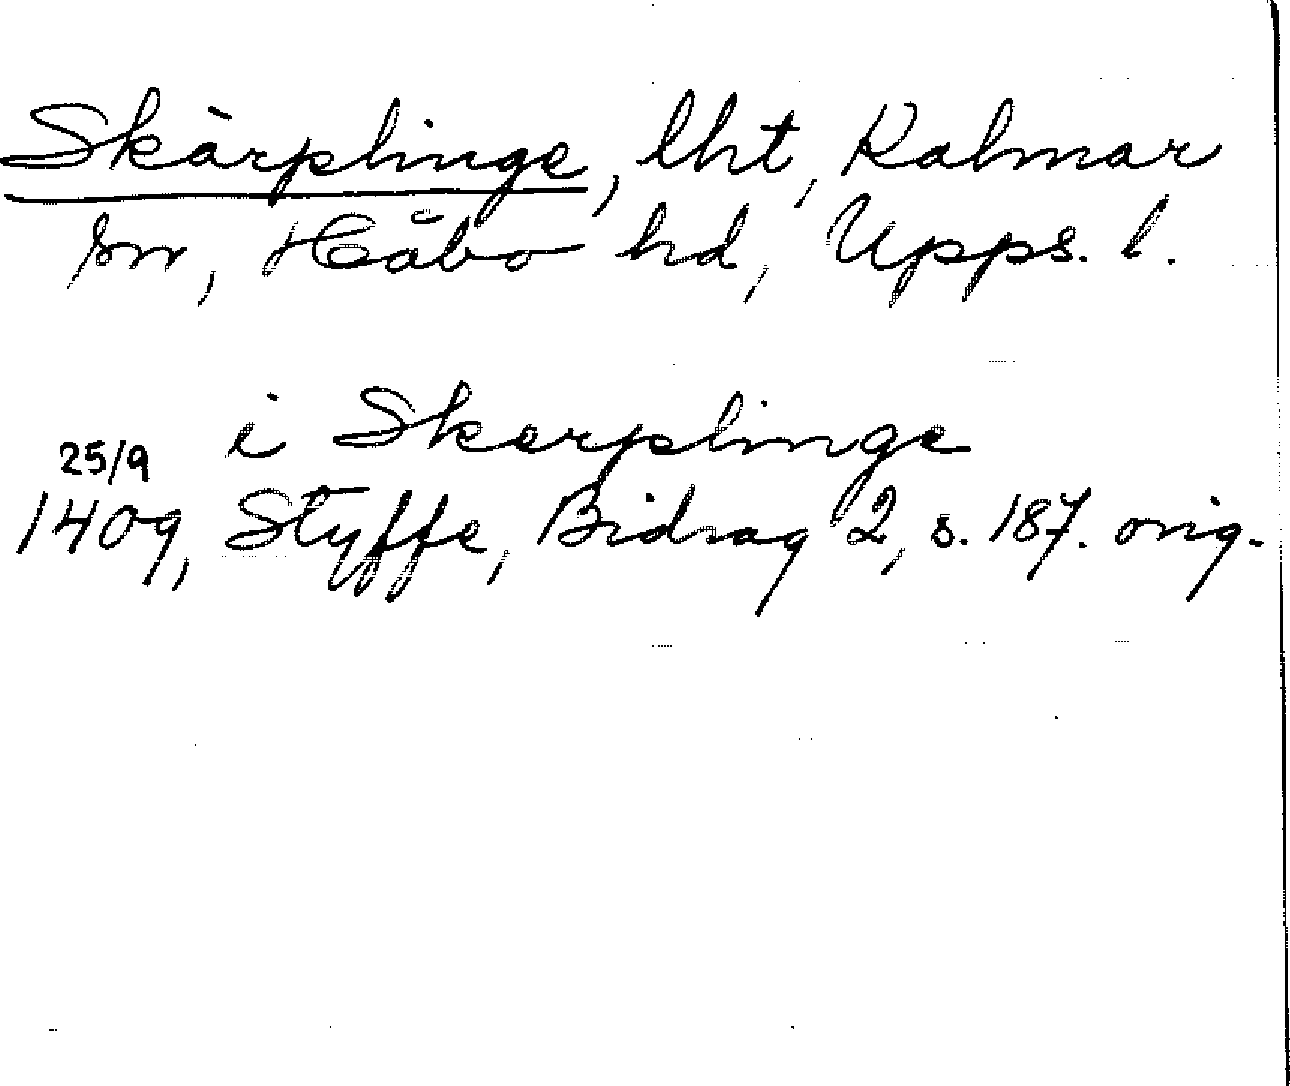 Skärplinge, lht, Kalmar
sn, Håbo hd, Upps. l.
i Skerplinge
25/9
1409, Styffe, Bidrag 2, s. 187. orig.